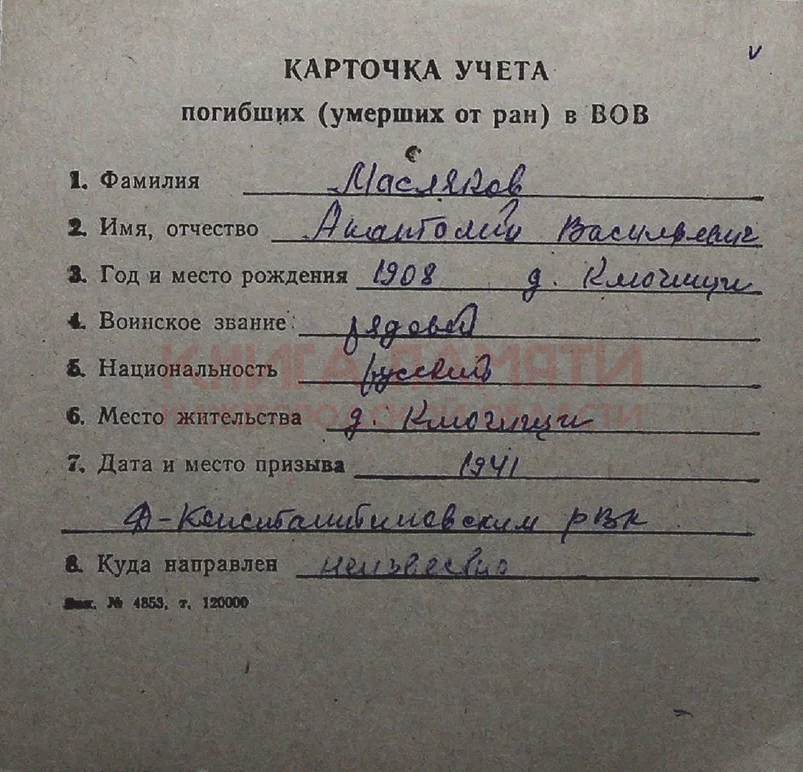 КАРТОЧКА УЧЕТА
погибших (умерших от ран) в ВОВ
1. Фамилия Масляков
2. Имя, отчество Анатолий Васильевич
3. Год и место рождения 1908 д. Ключищи
4. Воинское звание: рядовой
5. Национальность русский
КНИГА ПАМЯТИ
6. Место жительства д. Ключищи
7. Дата и место призыва 1941
Д-Константиновским РВК
8. Куда направлен неизвестно
Зак. № 4853, т. 120000